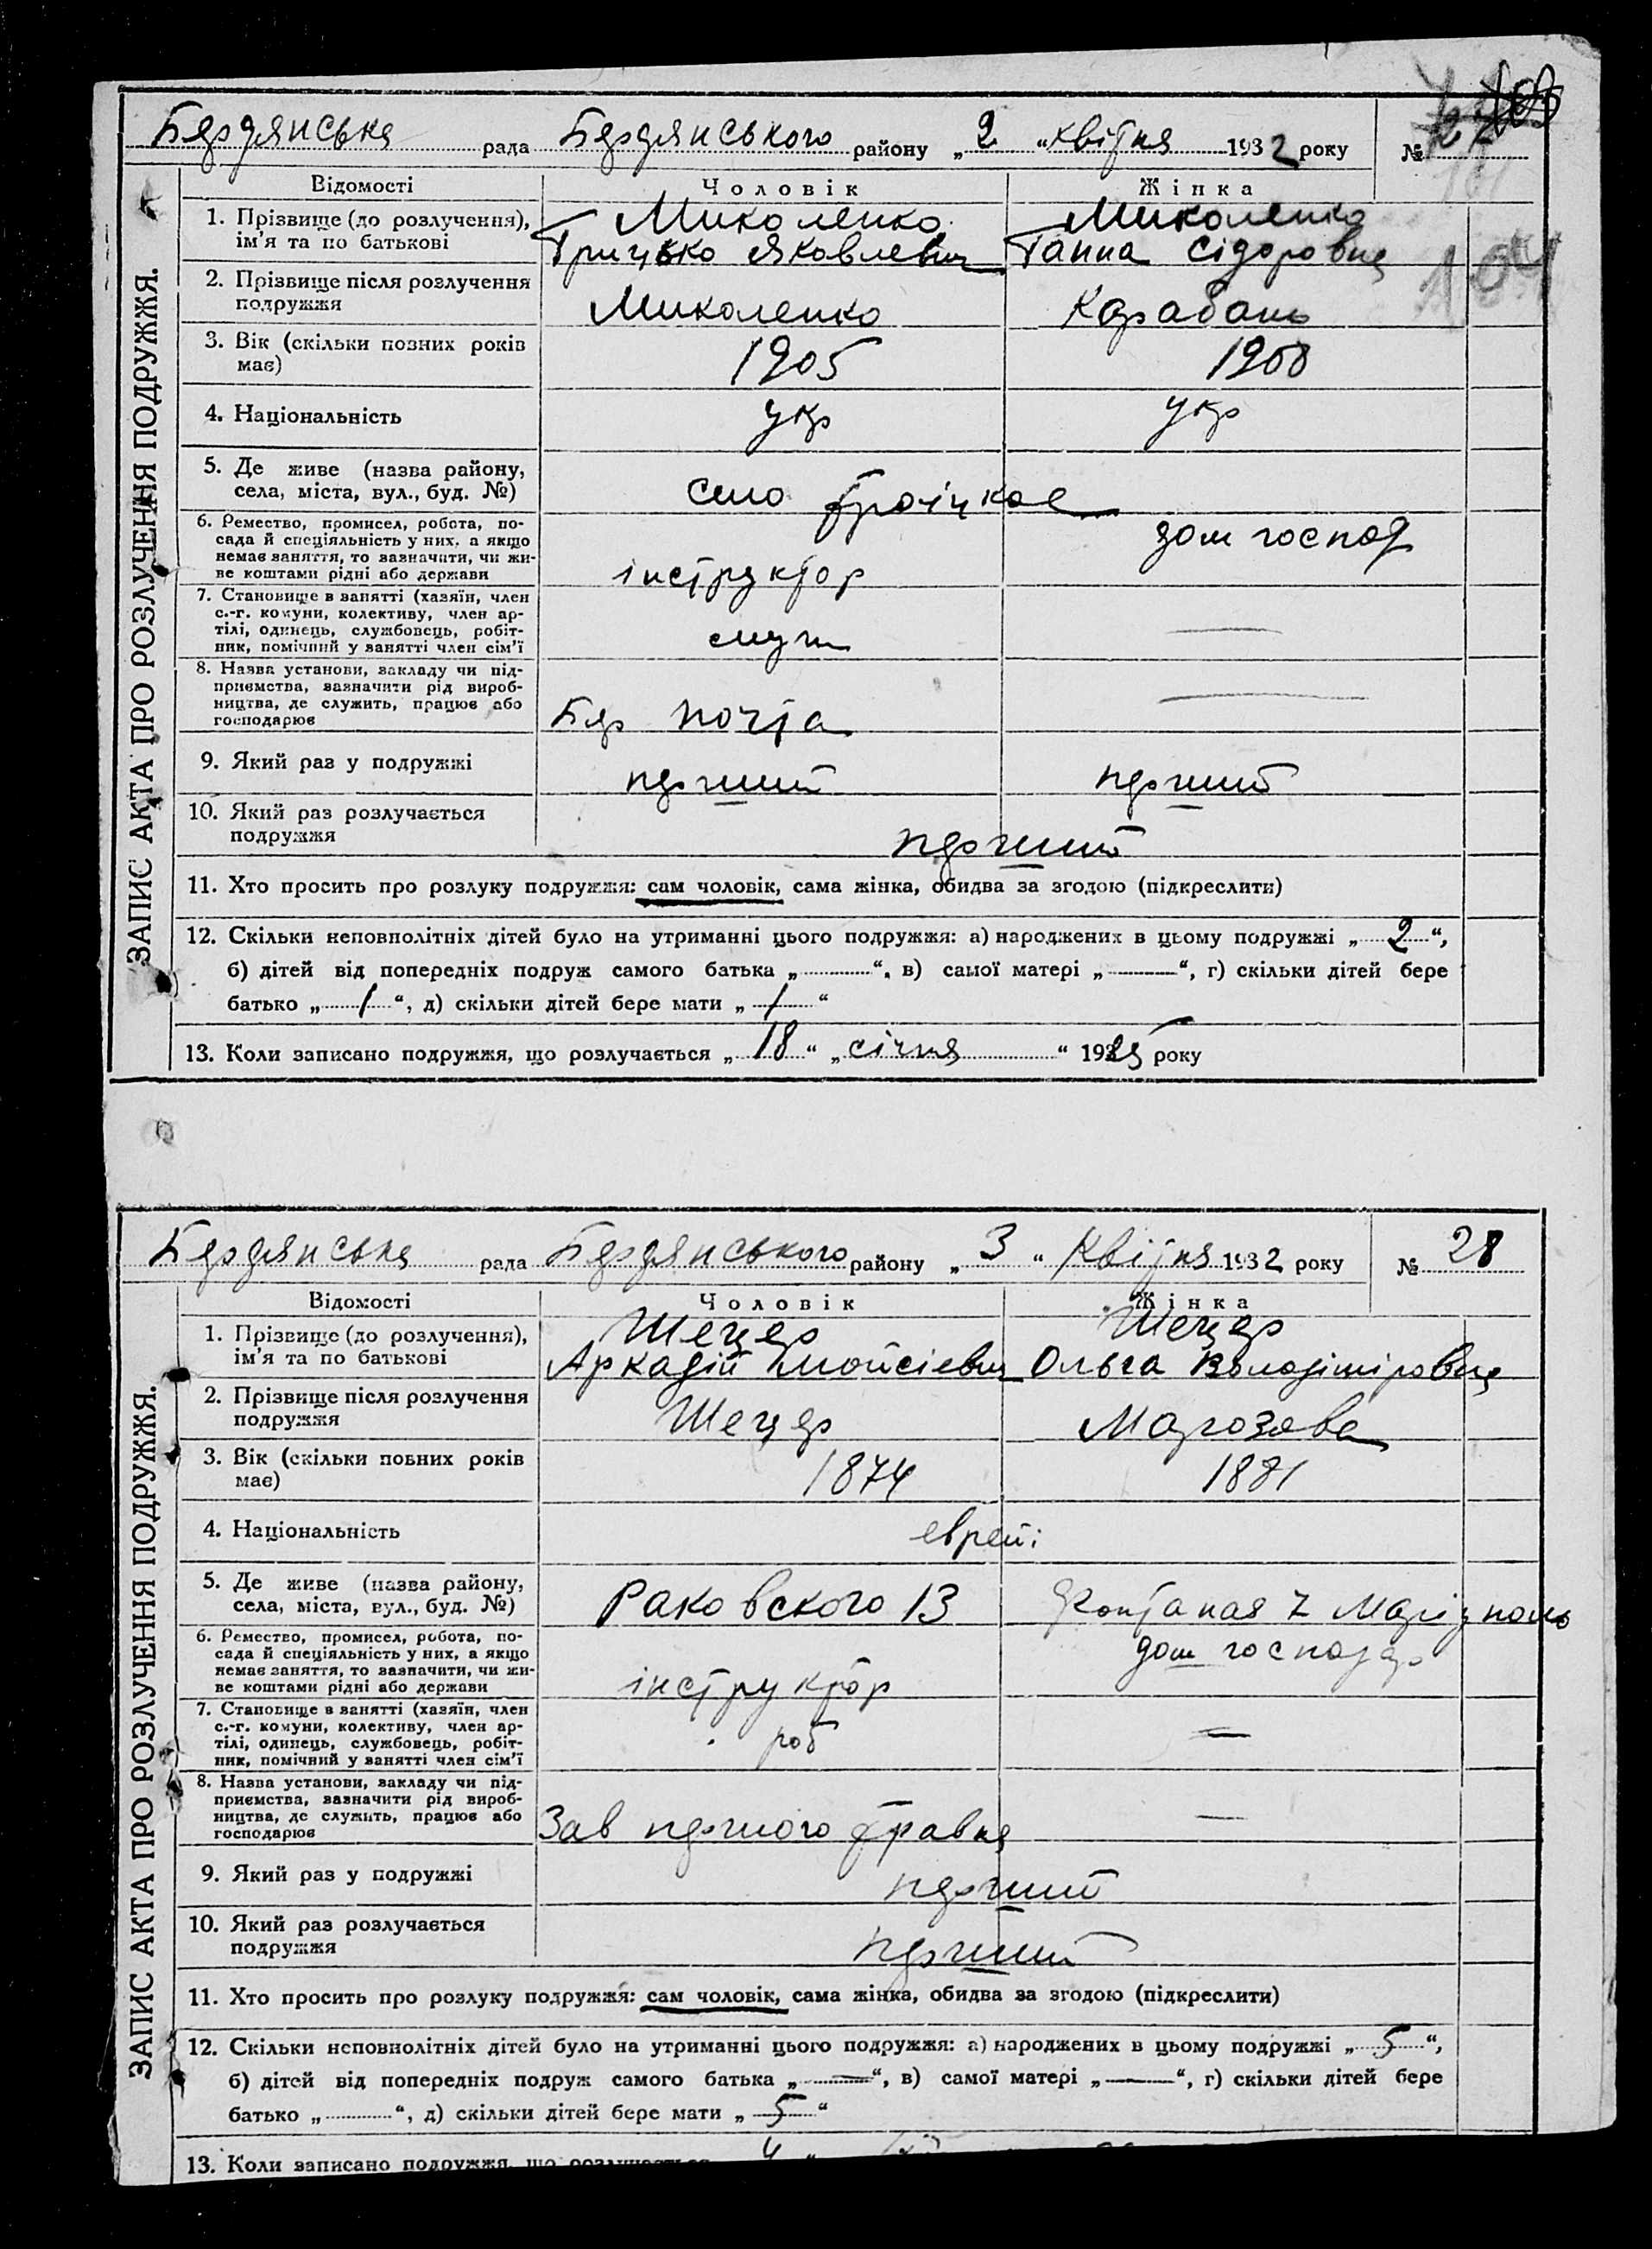 Бердянська рада Бердянського району „2 “ квітня 1932 року №
ЗАПИС АКТА ПРО РОЗЛУЧЕННЯ ПОДРУЖЖЯ.
Відомості Чоловік Жінка
1. Прізвище (до розлучення), Миколенко Миколенко
ім'я та по батькові Грицько Яковлевич Ганна Сідоровна
2. Прізвище після розлучення
подружжя Миколенко Карабань
3. Вік (скільки повних років
має) 1905 1908
4. Національність укр укр
5. Де живе (назва району,
села, міста, вул., буд. №) село Троїцкое
6. Ремество, промисел, робота, по-
сада й спеціяльність у них, а якщо дом господ
немає заняття, то зазначити, чи жи-
ве коштами рідні або держави інструктор
7. Становище в занятті (хазяїн, член
с.-г. комуни, колективу, член ар-
тілі, одинець, службовець, робіт- служ —
ник, помічний у занятті член сім'ї
8. Назва установи, закладу чи під-
приємства, зазначити рід вироб-
ництва, де служить, працює або —
господарює Бер почта
9. Який раз у подружжі перший перший
10. Який раз розлучається
подружжя перший
11. Хто просить про розлуку подружжя: сам чоловік, сама жінка, обидва за згодою (підкреслити)
12. Скільки неповнолітніх дітей було на утриманні цього подружжя: а) народжених в цьому подружжі „2“,
б) дітей від попередніх подруж самого батька „—“, в) самої матері „—“, г) скільки дітей бере
батько „1“, д) скільки дітей бере мати „1“
13. Коли записано подружжя, що розлучається „18“ „січня“ 1925 року
Бердянська рада Бердянського району „3“ Квітня 1932 року № 28
ЗАПИС АКТА ПРО РОЗЛУЧЕННЯ ПОДРУЖЖЯ.
Відомості Чоловік Жінка
1. Прізвище (до розлучення), Шецер Шецер
ім'я та по батькові Аркадій Мойсієвич Ольга Володіміровна
2. Прізвище після розлучення
подружжя Шецер Марозова
3. Вік (скільки повних років
має) 1874 1881
4. Національність евреї
5. Де живе (назва району,
села, міста, вул., буд. №) Раковского 13 Фонтаная 7 Маріуполь
6. Ремество, промисел, робота, по-
сада й спеціяльність у них, а якщо дом господар
немає заняття, то зазначити, чи жи-
ве коштами рідні або держави інструктор
7. Становище в занятті (хазяїн, член
с.-г. комуни, колективу, член ар-
тілі, одинець, службовець, робіт- роб —
ник, помічний у занятті член сім'ї
8. Назва установи, закладу чи під-
приємства, зазначити рід вироб-
ництва, де служить, працює або —
господарює Зав першого травня
9. Який раз у подружжі перший
10. Який раз розлучається
подружжя перший
11. Хто просить про розлуку подружжя: сам чоловік, сама жінка, обидва за згодою (підкреслити)
12. Скільки неповнолітніх дітей було на утриманні цього подружжя: а) народжених в цьому подружжі „5“,
б) дітей від попередніх подруж самого батька „—“, в) самої матері „—“, г) скільки дітей бере
батько „ “, д) скільки дітей бере мати „5“
13. Коли записано подружжя, що розлучається